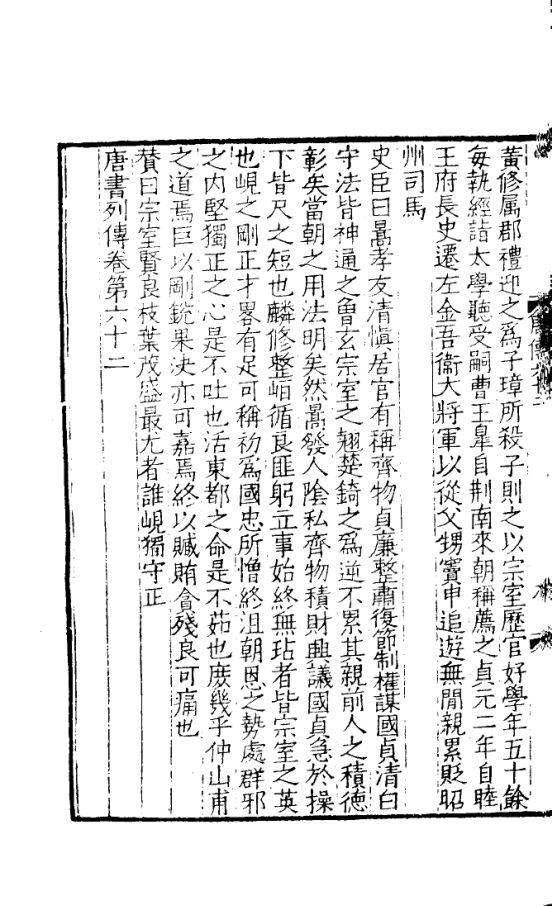 黃修屬郡禮迎之爲子璋所殺子則之以宗室歷官好學年五十餘
每執經詣太學聽受嗣曹王皐自荆南來朝稱薦之貞元二年自睦
王府長史遷左金吾衞大將軍以從父甥竇申追遊無閒親累貶昭
州司馬
史臣曰暠孝友清愼居官有稱齊物貞廉整肅復節制權謀國貞清白
守法皆神通之魯玄宗室之翹楚錡之爲逆不累其親前人之積德
彰矣當朝之用法明矣然暠發人陰私齊物積財興議國貞急於操
下皆尺之短也麟修整峘循良匪躬立事始終無玷者皆宗室之英
也峴之剛正才畧有足可稱初爲國忠所憎終沮朝恩之勢處群邪
之内堅獨正之心是不吐也活東都之命是不茹也庶幾乎仲山甫
之道焉巨以剛銳果决亦可嘉焉終以贓賄貪殘良可痛也
賛曰宗室賢良枝葉茂盛最尤者誰峴獨守正
唐書列傳卷第六十二